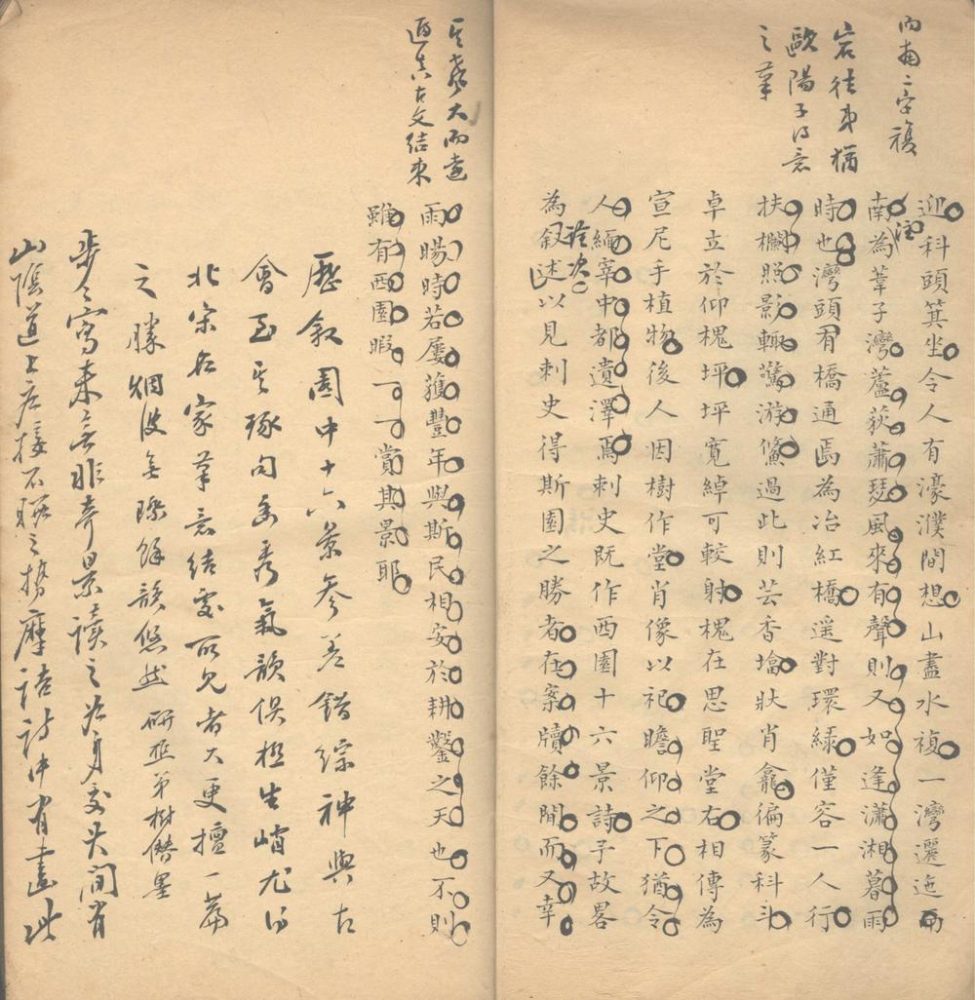 內南二字複
岩往來猶
歐陽子得意
之筆
迎科頭箕坐令人有濠濮間想山盡水複一灣邐迤而
南為葦子灣蘆荻蕭瑟風來有聲則又如逢瀟湘暮雨
時也灣頭有橋通焉為冶紅橋遥對環綠僅容一人行
扶欄照影輒驚游鯈過此則芸香壇狀肖龕徧篆科斗
卓立於仰槐坪坪寬綽可較射槐在思聖堂右相傳為
宣尼手植物後人因樹作堂肖像以祀瞻仰之下猶令
人緬宰中都遺澤焉刺史既作西園十六景詩子故畧
為叙述以見刺史得斯園之勝者在案牘餘閒而又幸
大而遠
古文結束
雨暘時若屢獲豐年與斯民相安於耕鑿之天也不則
雖有西園暇一一賞其景耶
歷叙園中十六景參差錯綜神與古
會至其琢句幽秀氣韻俱極生峭尤得
北宋名家筆意結處所見者大更擅一篇
之勝烟波無際餘韻悠然 研 弟樹僭墨
步步寫來無非奇景讀之于月夜共間有
山陰道上應接不暇之勢摩詰詩中有畫此